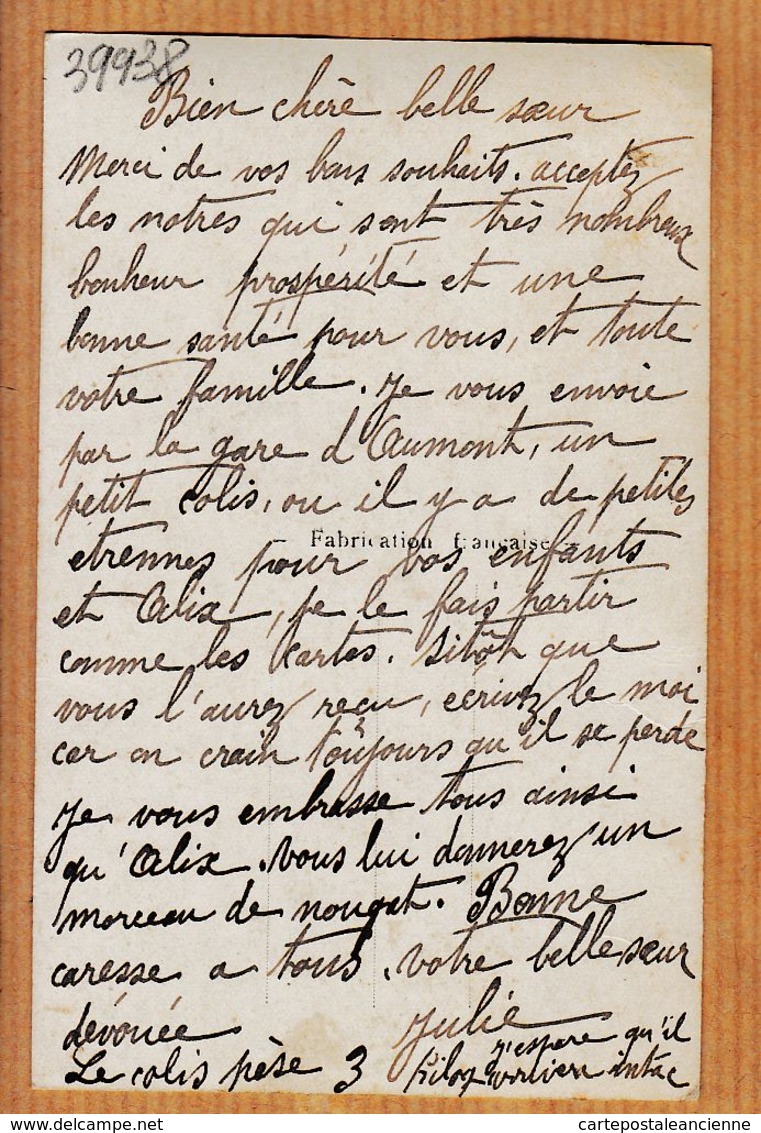 39938
Bien chère belle sœur
Merci de vos bons souhaits. acceptez
les notres qui sont très nombreux
bonheur prospérité et une
bonne santé pour vous, et toute
votre famille. Je vous envoie
par la gare d'Aumont, un
petit colis, ou il y a de petites
Fabrication française
etrennes pour vos enfants
et Alix, je le fais partir
comme les cartes. sitôt que
vous l'aurez reçu, ecrivez le moi
car on crain toujours qu'il se perde
Je vous embrasse tous ainsi
qu'Alix. Vous lui donnerez un
morceau de nougat. Bonne
caresse a tous. votre belle sœur
dévouée Julie
Le colis pèse 3 kilog j'espere qu'il
intac
cartepostaleancienne